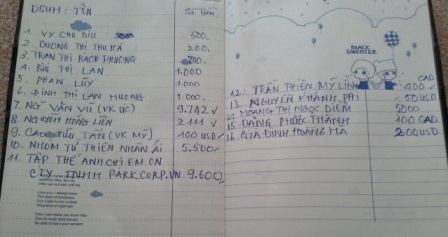 DSUH: TÍN
Số Tiền
1. VY CHU DIU 500.
2. DUONG THI THU HÀ 200.
3. TRẦN THỊ BẠCH PHƯỢNG 700.
4. BÙI THỊ LAN 1.000
5. PHAN LÚY 1.000
6. ĐINH THỊ LAN HƯƠNG 1.000.
7. NG VĂN VŨ (VK ÚC) 9.742
8 NGUYEN HỒNG LIÊN 2111
9. CAO TẤN (VK MỸ) 100 USD
10. NHÓM TỪ THIỆN NHÂN ÁI 5.500
11. TẬP THỂ ANH CHỊ EM CN
CTY TNHH PARK CORP. VN. 9.600
BLACK
GREATER
CAD
12. TRẦN THIÊN MỸ LINH 400
13. NGUYỄN KHÁNH PHI 50 USD
14 HOANG THI NGỌC DIỄM 5000
15. ĐẶNG PHƯỚC THÀNH 100 CAD
16. GIA ĐÌNH HOÀNG HA 200 USD